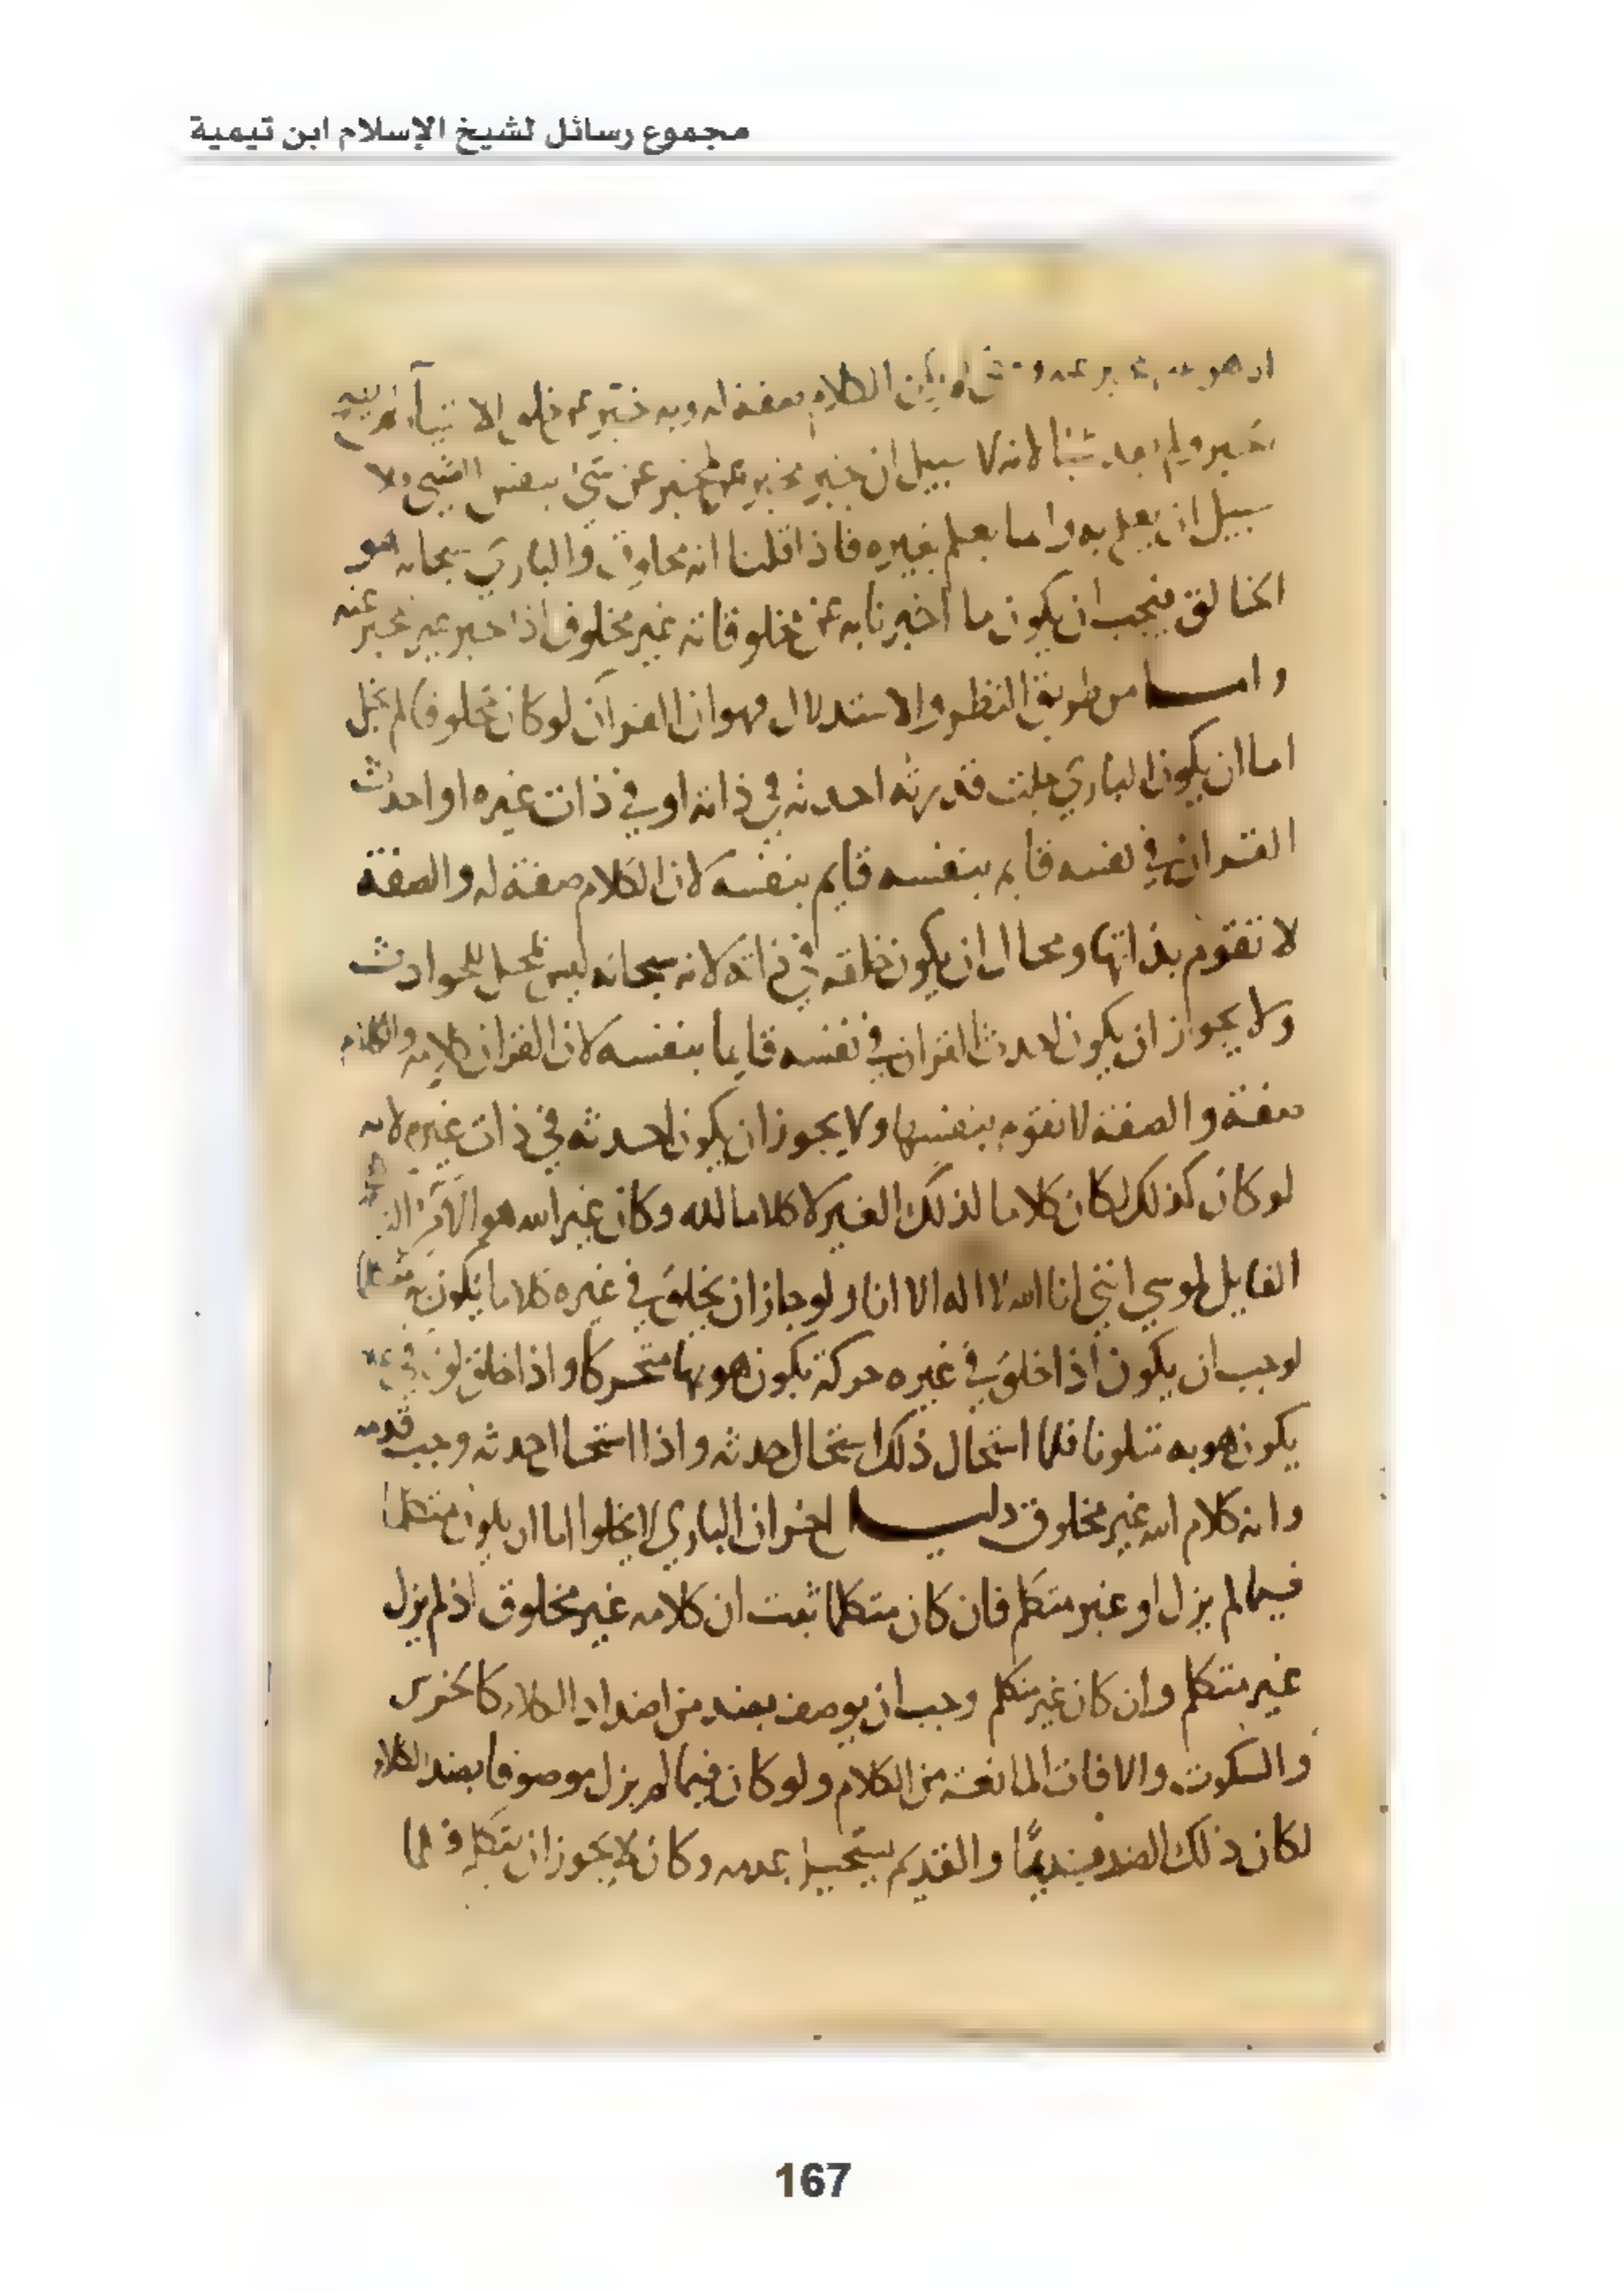 مجموع رسائل لشيخ الإسلام ابن تيمية
الكلام صفة له وبه
لانه لا سبيل ان عن شي بنفس الشي ولا
سبيل ان يعلم به وانما يعلم بغيره فاذا قلنا انه مخلوق والباري سبحانه هو
الخالق فيجب ان يكون ما اخبرنا به عن مخلوقاته غير مخلوق اذا
واما من طريق النظر والاستدلال فهو ان القرآن لو كان مخلوقا لم يخل
اما ان يكون الباري جلت قدرته احدثه في ذاته او في ذات غيره او احدث
القران في نفسه قايم بنفسه قايم بنفسه لان الكلام صفة له والصفة
لا تقوم بذاتها ومحال ان يكون خلقه في ذاته لانه سبحانه ليس بمحل للحوادث
ولا يجوز ان يكون احدث القران في نفسه قايما بنفسه لان القران كلامه والكلام
صفة والصفة لا تقوم بنفسها ولا يجوز ان يكون احدثه في ذات غيره لانه
لو كان كذلك لكان كلاما لذلك الغير لا كلاما لله وكان غير الله هو الامر
القايل لموسي انني انا الله لا اله الا انا ولو جاز ان يخلق في غيره كلاما يكون به متكلما
لوجب ان يكون اذا خلق في غيره حركة يكون هو بها متحركا واذا خلق لون في
يكون هو به متلونا فلما استحال ذلك استحال حدثه واذا استحا احدثه وجب قدمه
وانه كلام الله غير مخلوق دليل اخر ان الباري لا يخلوا اما ان يكون متكلما
فيما لم يزل او غير متكلم فان كان متكلما ثبت ان كلامه غير مخلوق اذ لم يزل
غير متكلم وان كان غير متكلم وجب ان يوصف بضد من اضداد الكلام كالخرس
والسكوت والافات المانعة من الكلام ولو كان فيما لم يزل موصوفا بضد الكلام
لكان ذلك الضد قديمًا والقديم يستحيل عدمه وكان لا يجوز ان يتكلم فلما
167